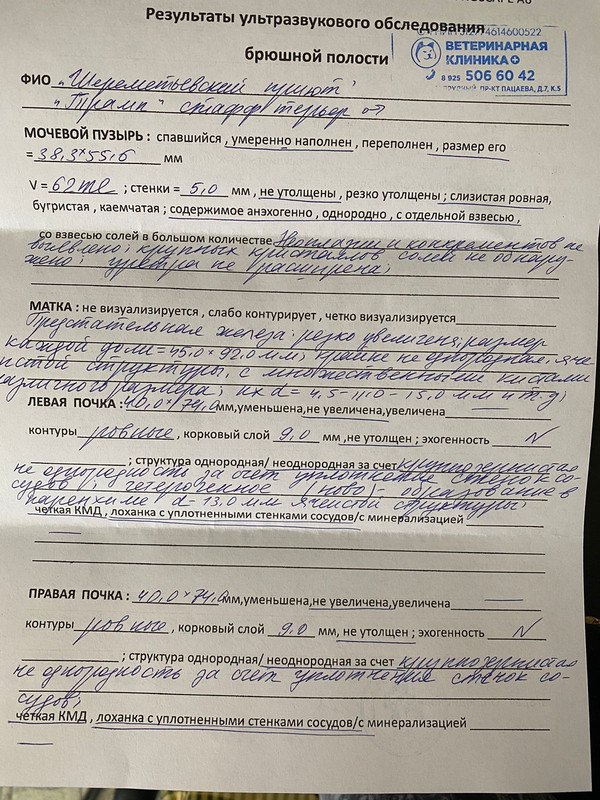 Результаты ультразвукового обследования
брюшной полости
ВЕТЕРИНАРНАЯ
КЛИНИКА
8 925 506 60 42
ПР-КТ ПАЦАЕВА, Д.7, К.5
ФИО "Шереметьевский приют"
"Трамп" стафф терьер
МОЧЕВОЙ ПУЗЫРЬ : спавшийся , умеренно наполнен , переполнен , размер его
= 38,3×55,6 мм
V = 62 ml ; стенки = 5,0 мм , не утолщены , резко утолщены ; слизистая ровная,
бугристая , каемчатая ; содержимое анэхогенно , однородно , с отдельной взвесью ,
со взвесью солей в большом количестве Неоплазии и конкрементов не
выявлено; крупных кристаллов солей не обнару-
жено; уретра не расширена;
МАТКА : не визуализируется , слабо контурирует , четко визуализируется
Предстательная железа: резко увеличена; размер
каждой доли = 45,0 × 92,0 мм; крайне не однородная, яче-
истой структуры, с множественными кистами
различного размера; их d = 4,5 - 11,0 - 15,0 мм и т.д;
ЛЕВАЯ ПОЧКА : 40,0 × 74,0 мм,уменьшена,не увеличена,увеличена
контуры ровные , корковый слой 9,0 мм ,не утолщен ; эхогенность N
; структура однородная/ неоднородная за счет крупнозернистая
не однородность за счет уплотнения стенок со-
судов; гетерогенное (ново) - образование в
паренхиме d - 13,0 мм ячеистой структуры;
четкая КМД , лоханка с уплотненными стенками сосудов/с минерализацией
ПРАВАЯ ПОЧКА : 40,0 × 74,0 мм,уменьшена,не увеличена,увеличена
контуры ровные , корковый слой 9,0 мм, не утолщен ; эхогенность N
; структура однородная/ неоднородная за счет крупнозернистая
не однородность за счет уплотнения стенок со-
судов;
четкая КМД , лоханка с уплотненными стенками сосудов/с минерализацией